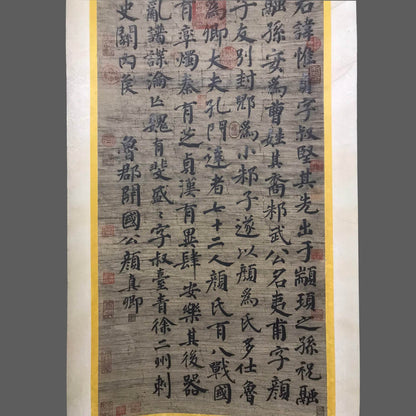 君諱惟貞字叔堅其先出于顓頊之孫祝融
融孫安為曹姓其裔邾武公名夷甫字顏
子友別封郳為小邾子遂以顏為氏多仕魯
為卿大夫孔門達者七十二人顏氏有八戰國
有率燭秦有芝貞漢有異肆安樂其後器
亂譜諜淪亡魏有斐盛〻字叔臺青徐二州刺
史關內侯 魯郡開國公顏真卿